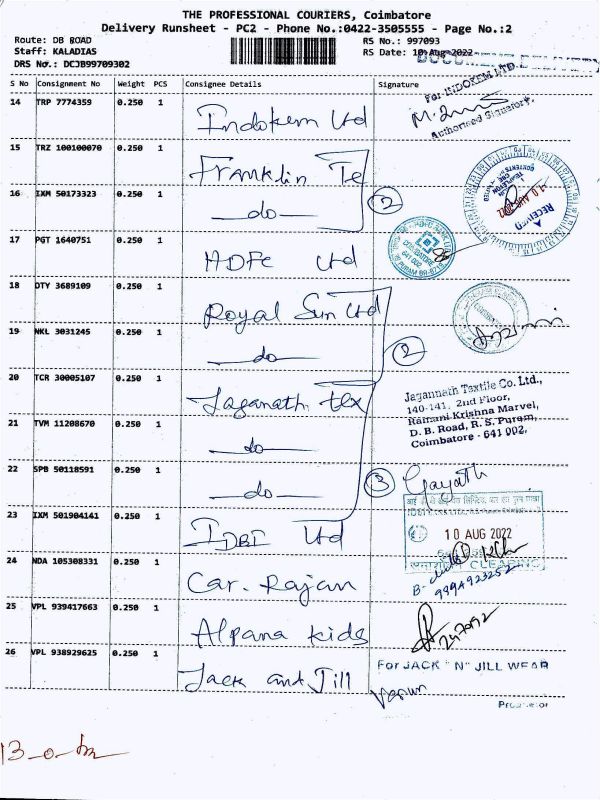 THE PROFESSIONAL COURIERS, Coimbatore
Delivery Runsheet - PC2 - Phone No.:0422-3505555 - Page No.:2
Route: DB ROAD
Staff: KALADIAS
DRS No.: DCJB99709302
RS No.: 997093
RS Date: 10-Aug-2022
DOCUMENT DELIVERY
S No Consignment No Weight PCS Consignee Details Signature
14 TRP 7774359 0.250 1 Indokem Ltd
For INDOKEM LTD.
Authorised Signatory.
15 TRZ 100100070 0.250 1 Franklin Te
16 IXM 50173323 0.250 1 —do— 2
RECEIVED
17 PGT 1640751 0.250 1 HDFC Ltd
COIMBATORE
641 002
18 DTY 3689109 0.250 1 Royal Sun Ltd
19 NKL 3031245 0.250 1 —do— 2
20 TCR 30005107 0.250 1 Jaganath tex
Jagannath Textile Co. Ltd.,
140-141, 2nd Floor,
Ramani Krishna Marvel,
D. B. Road, R. S. Puram,
Coimbatore - 641 002.
21 TVM 11208670 0.250 1 —do—
22 SPB 50118591 0.250 1 —do— 3
Gayath
23 IXM 501904141 0.250 1 IDBI Ltd
10 AUG 2022
CLEARING
24 NDA 105308331 0.250 1 Car. Rajan
9994923252
25 VPL 939417663 0.250 1 Alpana kids
26 VPL 938929625 0.250 1 Jack and Jill
For JACK "N" JILL WEAR
Varun
Proprietor